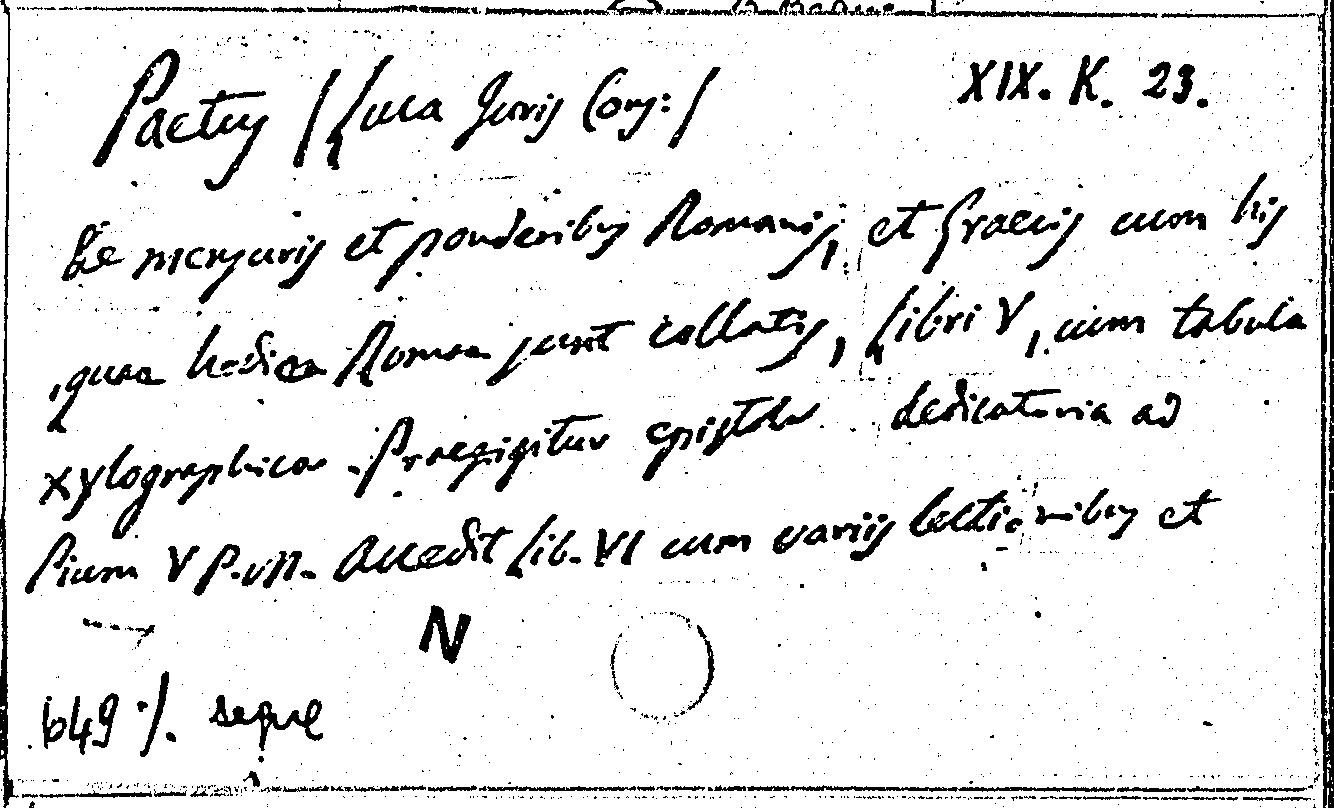 Paetus /Luca Juris Cons:/ XIX. K. 23.
De mensuris et ponderibus Romanis, et Graecis cum his
quae hodiea Romea sunt collatis, Libri V, cum tabula
xylographica. Praefigitur epistola dedicatoria ad
Pium V P.M. Accedit Lib. VI cum variis lectionibus et
N
649 ·/. segue